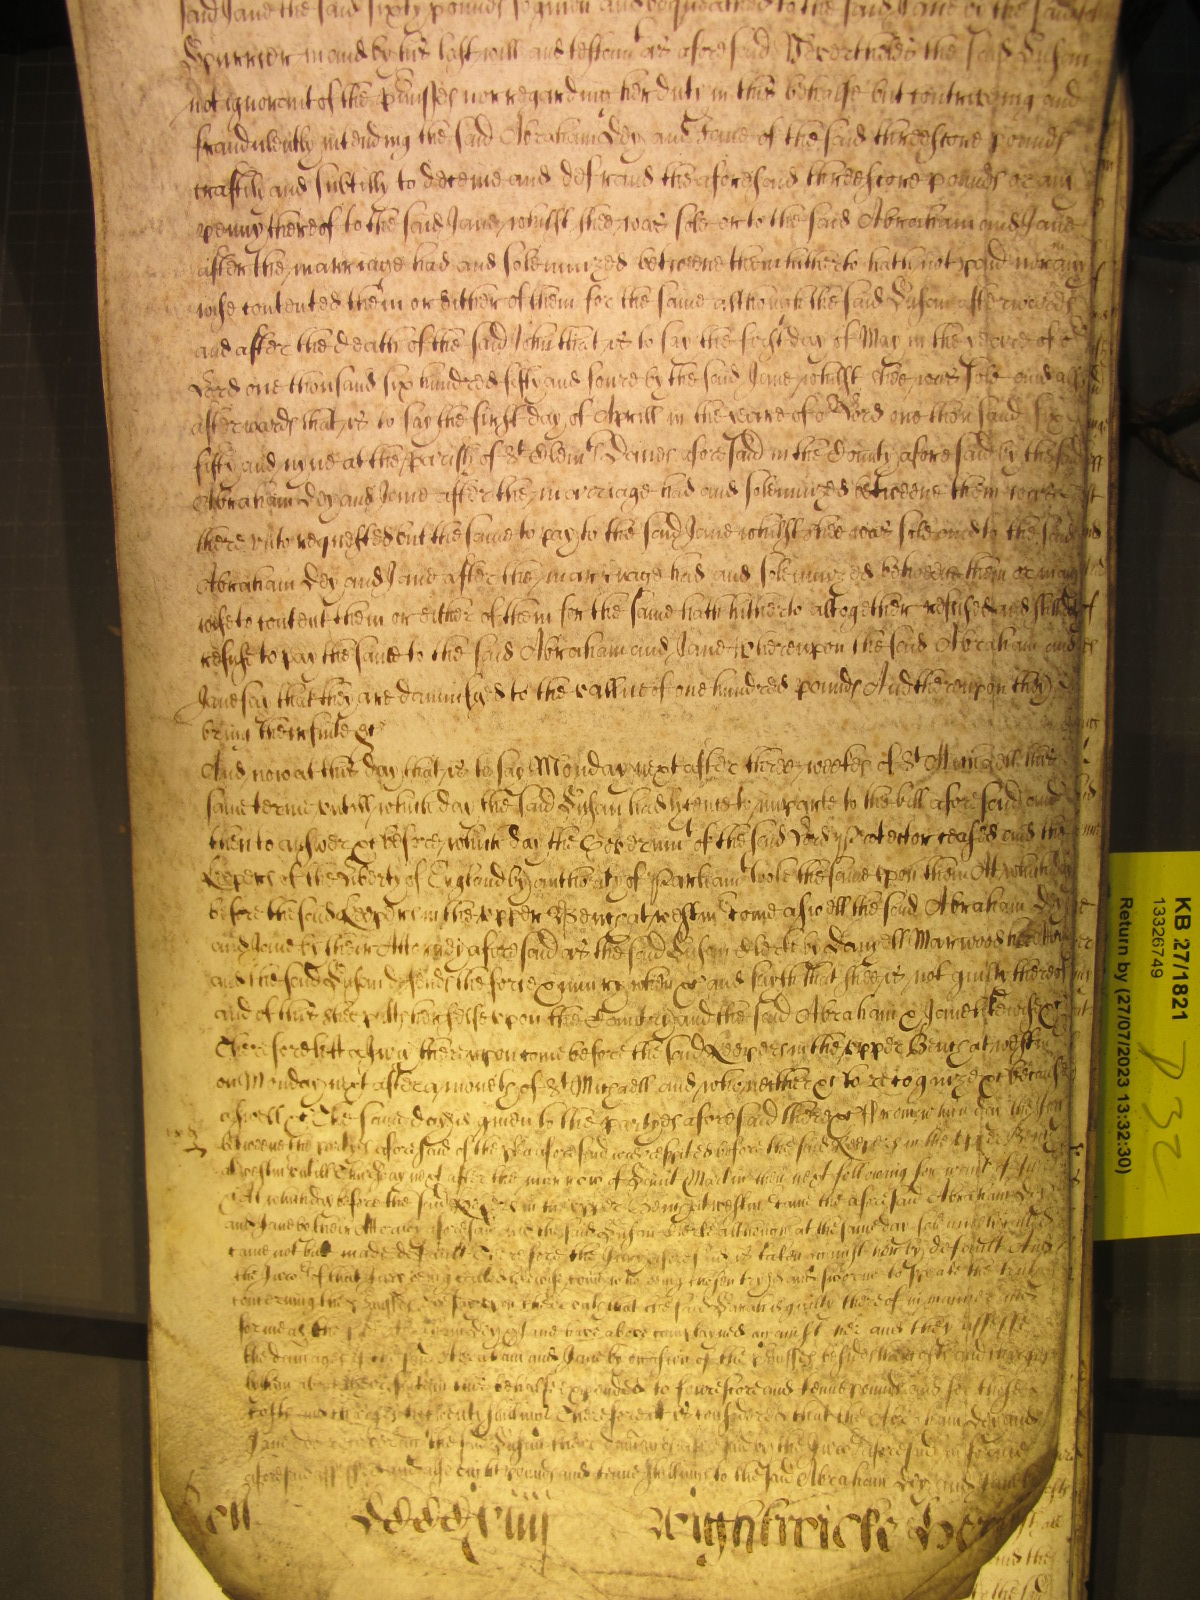 said Jane the said sixty pounds so given and bequeathed to the said Jane by the said John
Currier in and by his last will and testamt as aforesaid Neverthelesse the said Susan
not ignorant of the premisses nor regarding her duty in this behalfe but contriveing and
fraudulently intending the said Abraham Dey and Jane of the said threescore pounds
craftily and subtilly to deceive and defraud the aforesaid threescore pounds or any
penny thereof to the said Jane whilst shee was sole or to the said Abraham and Jane
after the marriage had and solemnized betweene them hitherto hath not paid nor any
wise contented them or either of them for the same although the said Susan afterwards
and after the death of the said John that is to say the first day of May in the yeare of or
Lord one thousand six hundred fifty and foure by the said Jane whilst shee was sole and also
afterwards that is to say the first day of Aprill in the yeare of or Lord one thousand six
fifty and nyne at the parish of St Clemt Danes aforesaid in the County aforesaid by the said
Abraham Dey and Jane after the marriage had and solemnized betweene them was
thereunto requested but the same to pay to the said Jane whilst shee was sole and to the said
Abraham Dey and Jane after the marriage had and solemnized betweene them or in any
wise to content them or either of them for the same hath hitherto altogether refused and still doth
refuse to pay the same to the said Abraham and Jane Whereupon the said Abraham and
Jane say that they are damnifyed to the vallue of one hundred pounds And thereupon they
bring their suite &c
And now at this day that is to say Monday next after three weekes of St Michaell this
same terme untill which day the said Susan had lycence to imparle to the bill aforesaid and
then to answer &c before which day the Governmt of the said Lord Protector ceased and the
Keepers of the liberty of England by authority of Parliamt tooke the same upon them At which day
before the said Keepers in the upper Bench at westmr come aswell the said Abraham Dey
and Jane by their Attorney aforesaid as the said Susan Clerke by Daniell Marwood her Attorney
and the said Susan defends the force & iniury when &c and saith that shee is not guilty thereof
and of this shee putts her selfe upon the Countrey and the said Abraham & Jane likewise &c
Therefore lett a Jury thereupon come before the said Keepers in the upper Bench at westmr
on Monday next after a moneth of St Michaell and who neither &c to recognize &c because
aswell &c The same day is given to the partyes aforesaid there &c From which day the Jury
betweene the partyes aforesaid of the plea aforesaid was respited before the said Keepers in the upper Bench
at westmr untill Thursday next after the morrow of Saint Martin then next following for want of Jurors
At which day before the said Keepers in the upper Bench at westmr came the aforesaid Abraham Dey
and Jane by their Attorney aforesaid and the said Susan Clerke although at the same day solemnly called
came not but made default Therefore the Jury aforesaid is taken against her by default And
the Jurors of that Jury being called likewise come who being chosen tryed and sworne to speake the truth
concerning the premisses say upon their oath that the said Susan is guilty thereof in manner and
forme as the said Abraham Dey & Jane have above complayned against her and they assesse
the damages of the said Abraham and Jane by occasion of the premisses besides their costs and charges
by them about their suite in this behalfe expended to fowrescore and tenne pounds and for those
costs and charges to twenty shillings Therefore it is considered that the Abraham Dey and
Jane doe recover against the said Susan their damages aforesaid by the Jurors aforesaid in forme
aforesaid assessed and also eight pounds and tenne shillings to the said Abraham Dey and Jane
KB 27/1821
13326749
Return by (27/07/2023 13:32:30)